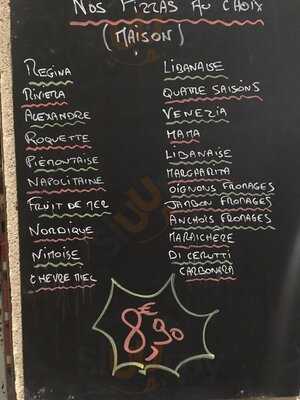 Nos Pizzas Au Choix
(Maison)
Regina
Riviera
Alexandre
Roquette
Piémontaise
Napolitaine
Fruit de mer
Nordique
Nimoise
Chevre Miel
Libanaise
Quatre Saisons
Venezia
Mama
Libanaise
Margarita
Oignons Fromages
Jambon Fromages
Anchois Fromages
Maraichère
Di Cerutti
Carbonara
8€,90